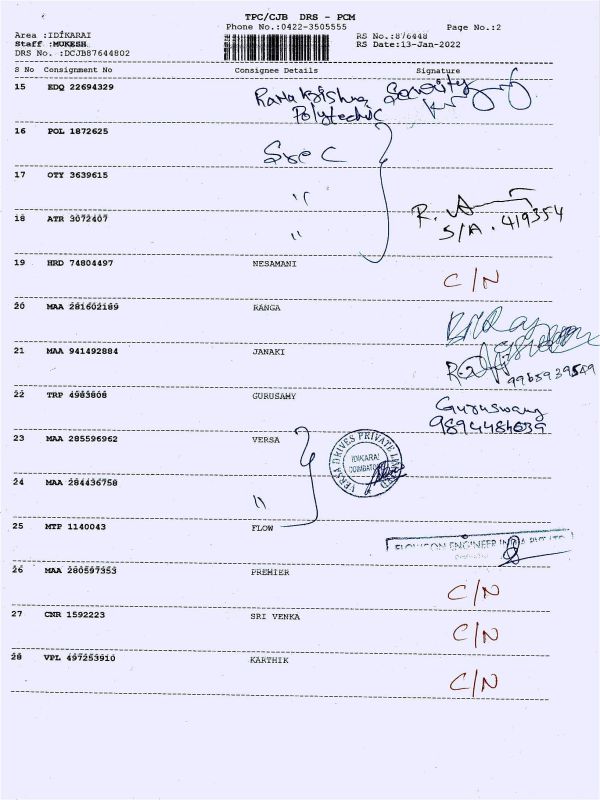 TPC/CJB DRS - PCM
Phone No.:0422-3505555 Page No.:2
Area :IDIKARAI RS No.:876448
Staff :MUKESH RS Date:13-Jan-2022
DRS No. :DCJB87644802
S No Consignment No Consignee Details Signature
15 EDQ 22694329 Rama Krishna Security
Polytechnic
16 POL 1872625 Srec
17 OTY 3639615 "
R.
18 ATR 3072407 " S/A. 419354
19 HRD 74804497 NESAMANI C/N
20 MAA 281602189 RANGA
21 MAA 941492884 JANAKI
9965939549
22 TRP 4983808 GURUSAMY Guruswamy
9894484639
23 MAA 285596962 VERSA
VERSA DRIVES PRIVATE LIMITED
IDIKARAI
COIMBATORE
24 MAA 284436758 "
25 MTP 1140043 FLOW
26 MAA 280597353 PREMIER C/N
27 CNR 1592223 SRI VENKA C/N
28 VPL 497253910 KARTHIK C/N